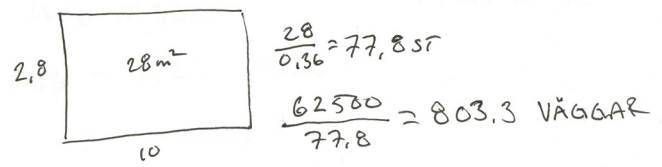 2,8
28 m²
10
28/0,36 = 77,8 ST
62500/77,8 = 803,3 VÄGGAR